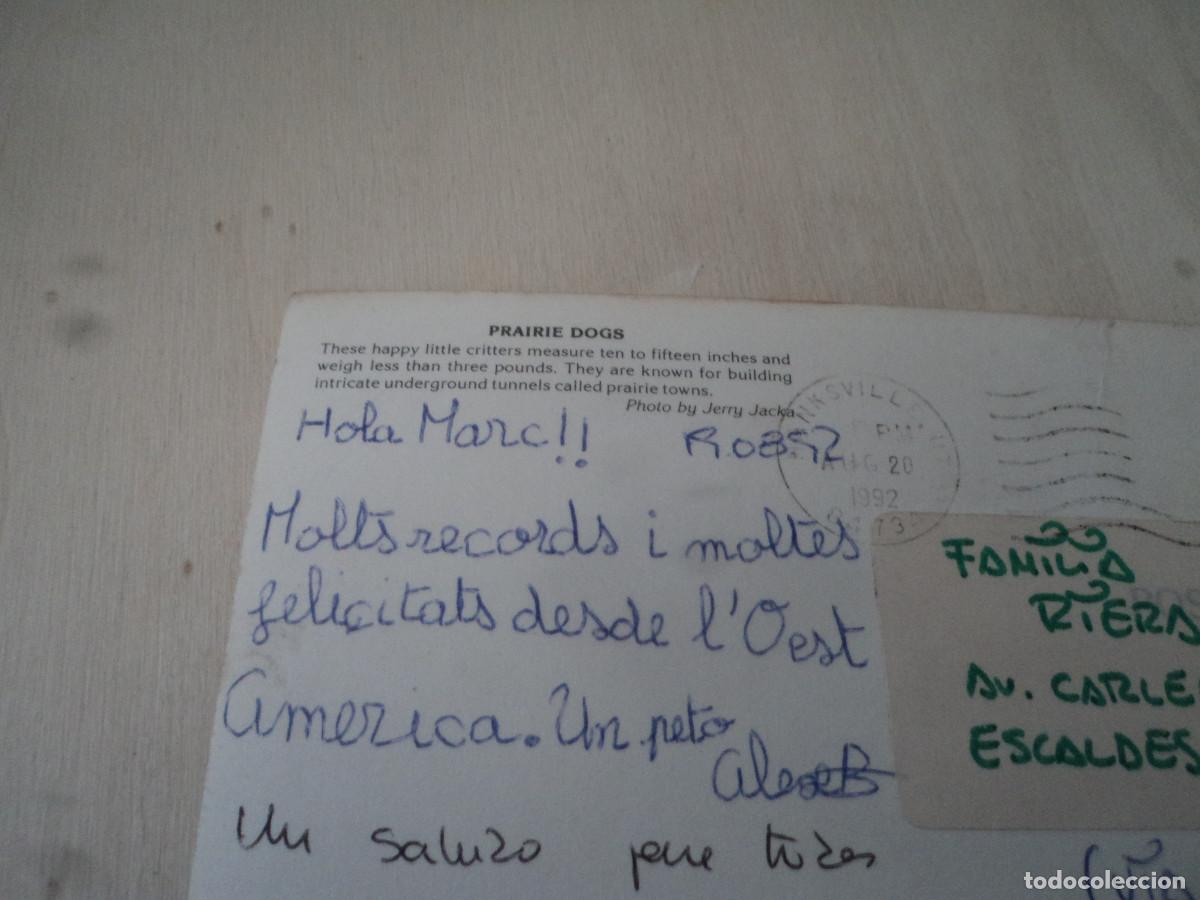 PRAIRIE DOGS
These happy little critters measure ten to fifteen inches and
weigh less than three pounds. They are known for building
intricate underground tunnels called prairie towns.
Photo by Jerry Jacka
Hola Marc!!
NKSVILLE
PM
AUG 20
1992
Molts records i moltes
feliçitats desde l'Oest
America. Un peto
Un saludo para
FAMILIA
RIERA
AV. CARLE
ESCALDES
todocoleccion